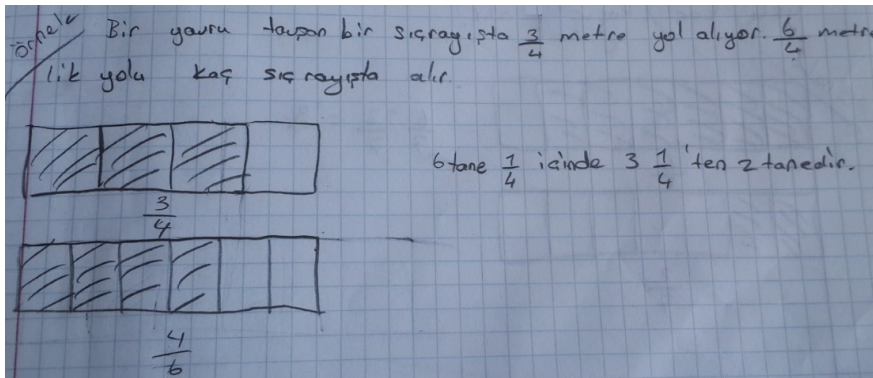 örnek
Bir yavru tavşan bir sıçrayışta 3/4 metre yol alıyor. 6/4 metre
lik yolu kaç sıçrayışta alır.
6 tane 1/4 içinde 3 1/4 'ten 2 tanedir.
3/4
4/6